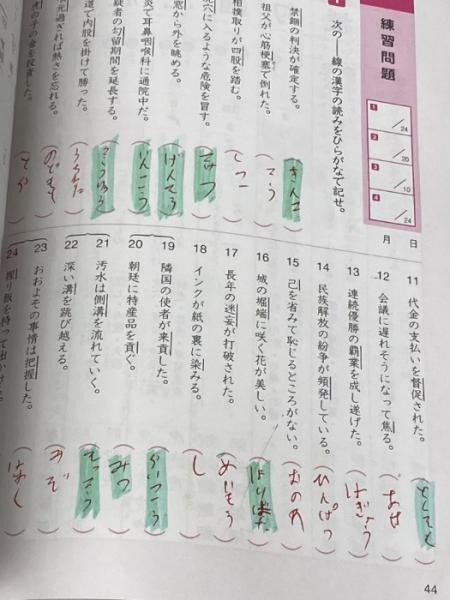 練習問題
1 /24
2 /20
3 /10
4 /24
月 日
次の――線の漢字の読みをひらがなで記せ。
禁錮の判決が確定する。(きんこ)
祖父が心筋梗塞で倒れた。(こう)
相撲取りが四股を踏む。(しこ)
穴に入るような危険を冒す。
窓から外を眺める。
炎で耳鼻咽喉科に通院中だ。(いんこう)
疑者の勾留期間を延長する。(こうりゅう)
道で内股を掛けて勝った。(うちまた)
元過ぎれば熱さを忘れる。(のどもと)
虎の子の金を投資した。(とら)
11 代金の支払いを督促された。
12 会議に遅れそうになって焦る。(あせ)
13 連続優勝の覇業を成し遂げた。(はぎょう)
14 民族解放の紛争が頻発している。(ひんぱつ)
15 己を省みて恥じるところがない。(おのれ)
16 城の堀端に咲く花が美しい。(ほりばた)
17 長年の迷妄が打破された。(めいもう)
18 インクが紙の裏に染みる。(し)
19 隣国の使者が来貢した。(らいこう)
20 朝廷に特産品を貢ぐ。(みつ)
21 汚水は側溝を流れていく。(そっこう)
22 深い溝を跳び越える。(みぞ)
23 おおよその事情は把握した。(はあく)
24 握り飯を持って出かける。
44